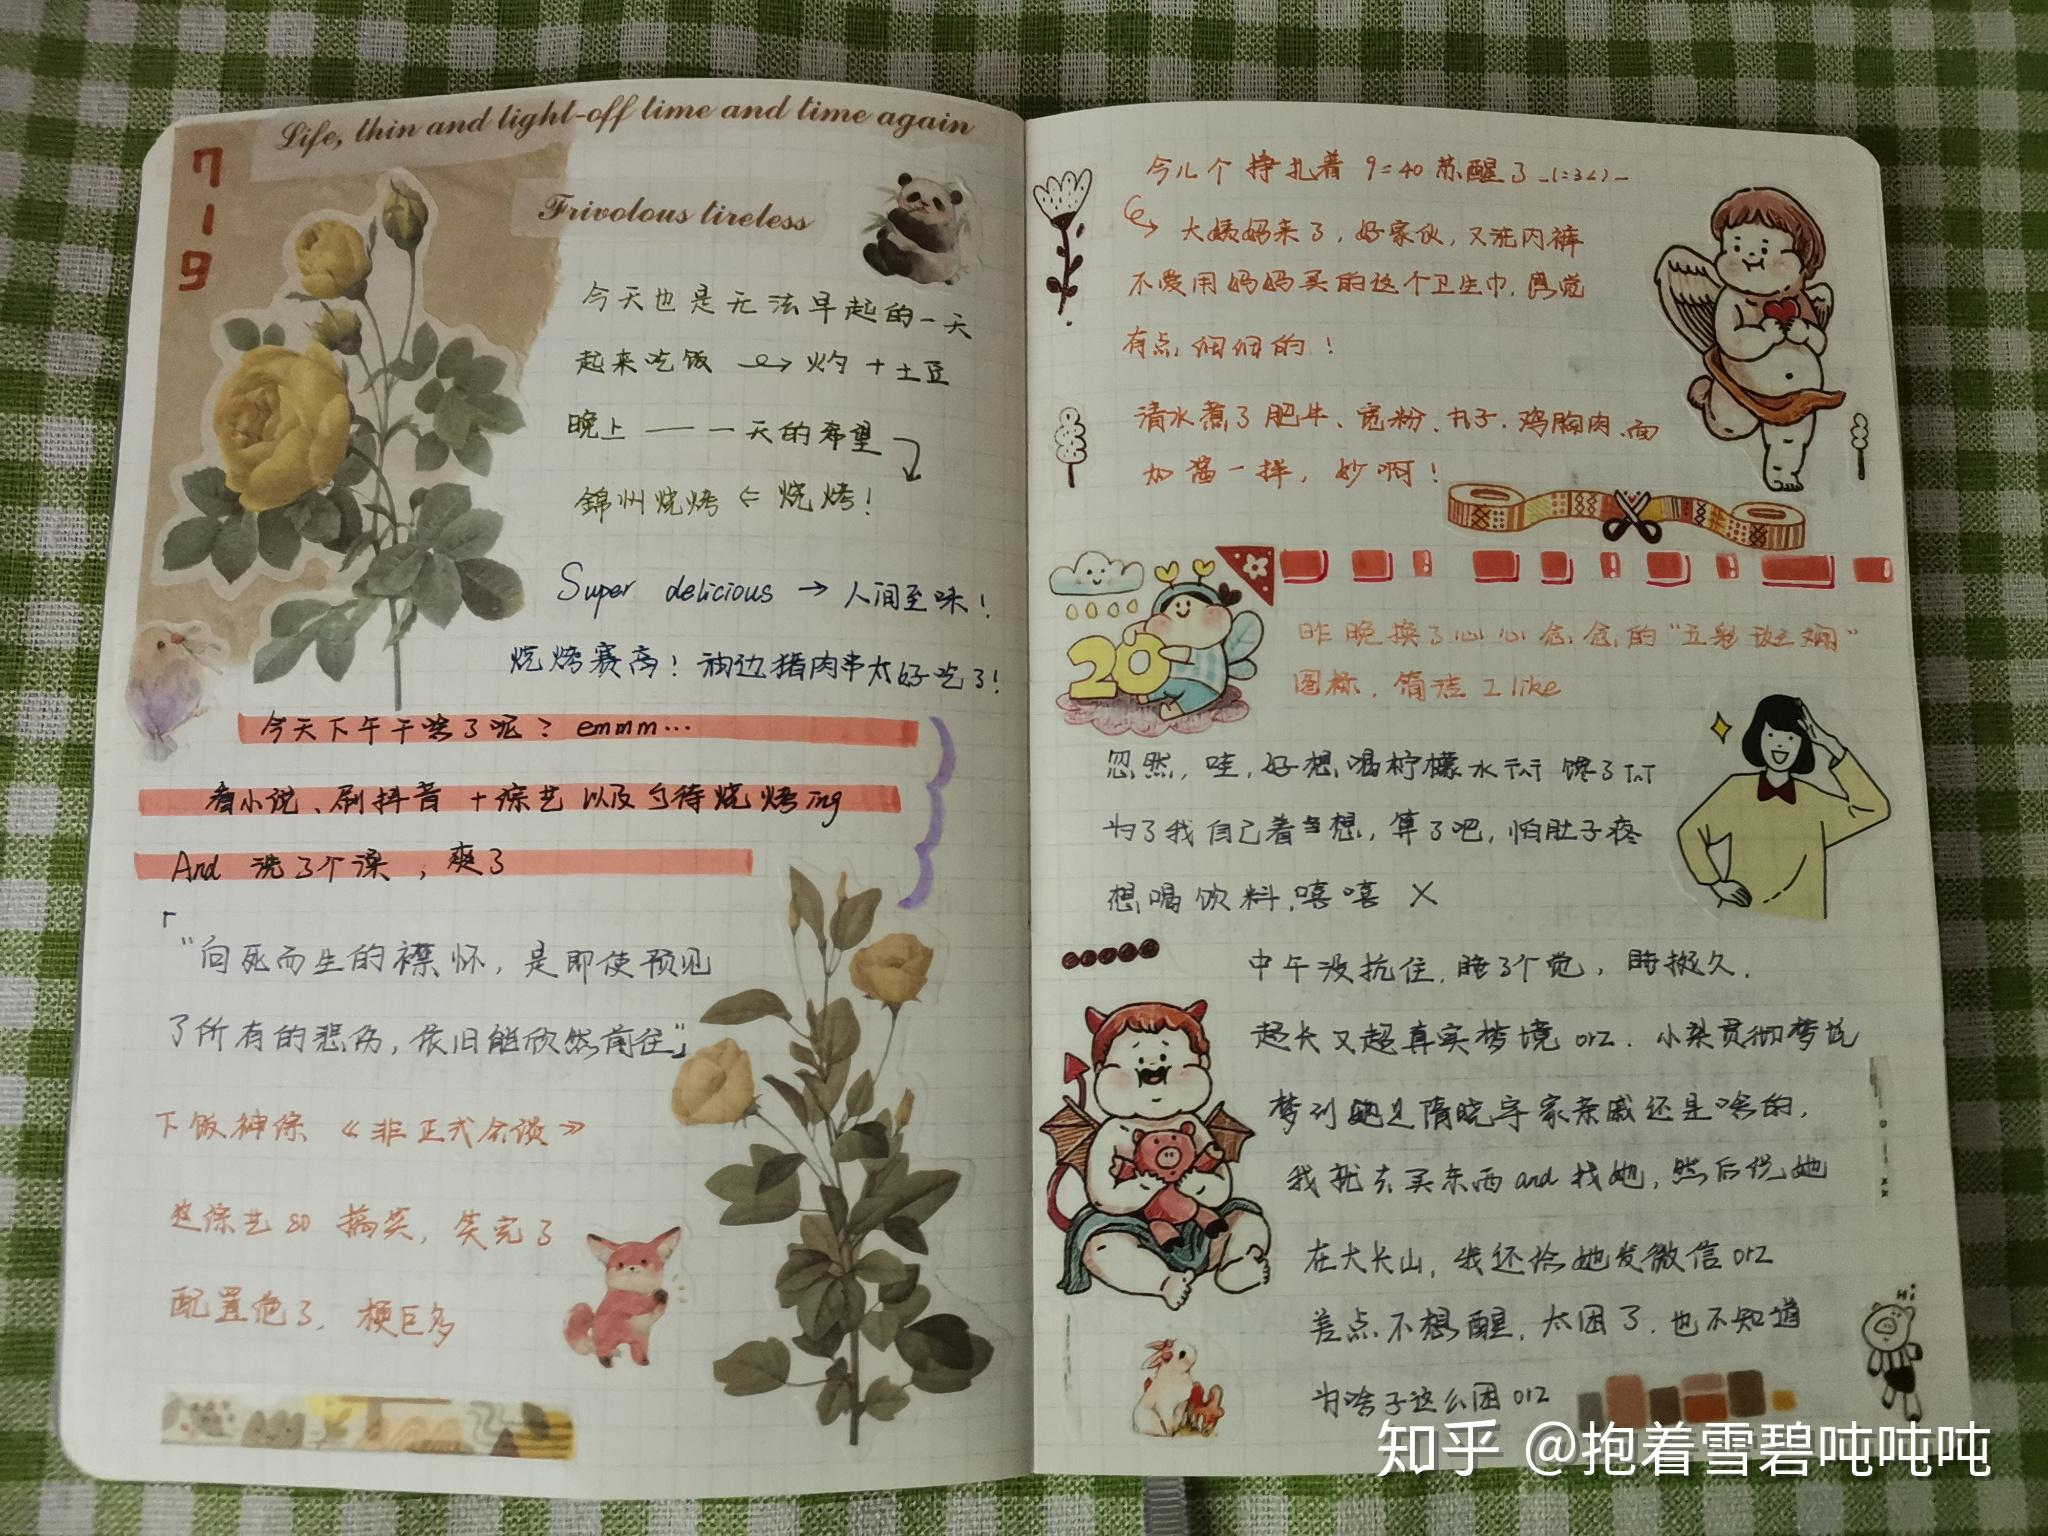 Life, thin and light-off time and time again
7
1
9
Frivolous tireless
今天也是无法早起的一天
起来吃饭 → 灼 + 土豆
晚上 —— 一天的希望
錦州烧烤 ⇐ 烧烤!
Super delicious → 人间至味!
烧烤赛高! 神边猪肉串太好吃了!
今天下午干啥了呢? emmm…
看小说、刷抖音 + 综艺 以及 等待烧烤ing
And 洗了个澡,爽了
「"向死而生的襟怀,是即使预见
了所有的悲伤,依旧能欣然前往」
下饭神综 《非正式会谈》
这综艺 so 搞笑,笑完了
配置绝了,梗巨多
今儿个 挣扎着 9:40 苏醒了 _(:3<)_
大姨妈来了,好家伙,又洗内裤
不爱用妈妈买的这个卫生巾,感觉
有点 的!
清水煮了肥牛、宽粉、丸子、鸡胸肉、面
加酱一拌,妙啊!
20
昨晚换了心心念念的"五彩斑斓"
图标,简洁 I like
忽然,哇,好想喝柠檬水TnT 馋了TnT
为了我自己着想,算了吧,怕肚子疼
想喝饮料,嘻嘻 X
中午没抗住,睡了个觉,睡挺久.
超长又超真实梦境 orz. 小 贯彻梦
梦到她是隋晓宇家亲戚还是啥的,
我就去买东西and找她,然后说她
在大长山,我还给她发微信orz
差点不想醒,太困了,也不知道
为啥子这么困orz
Hi
知乎 @抱着雪碧吨吨吨